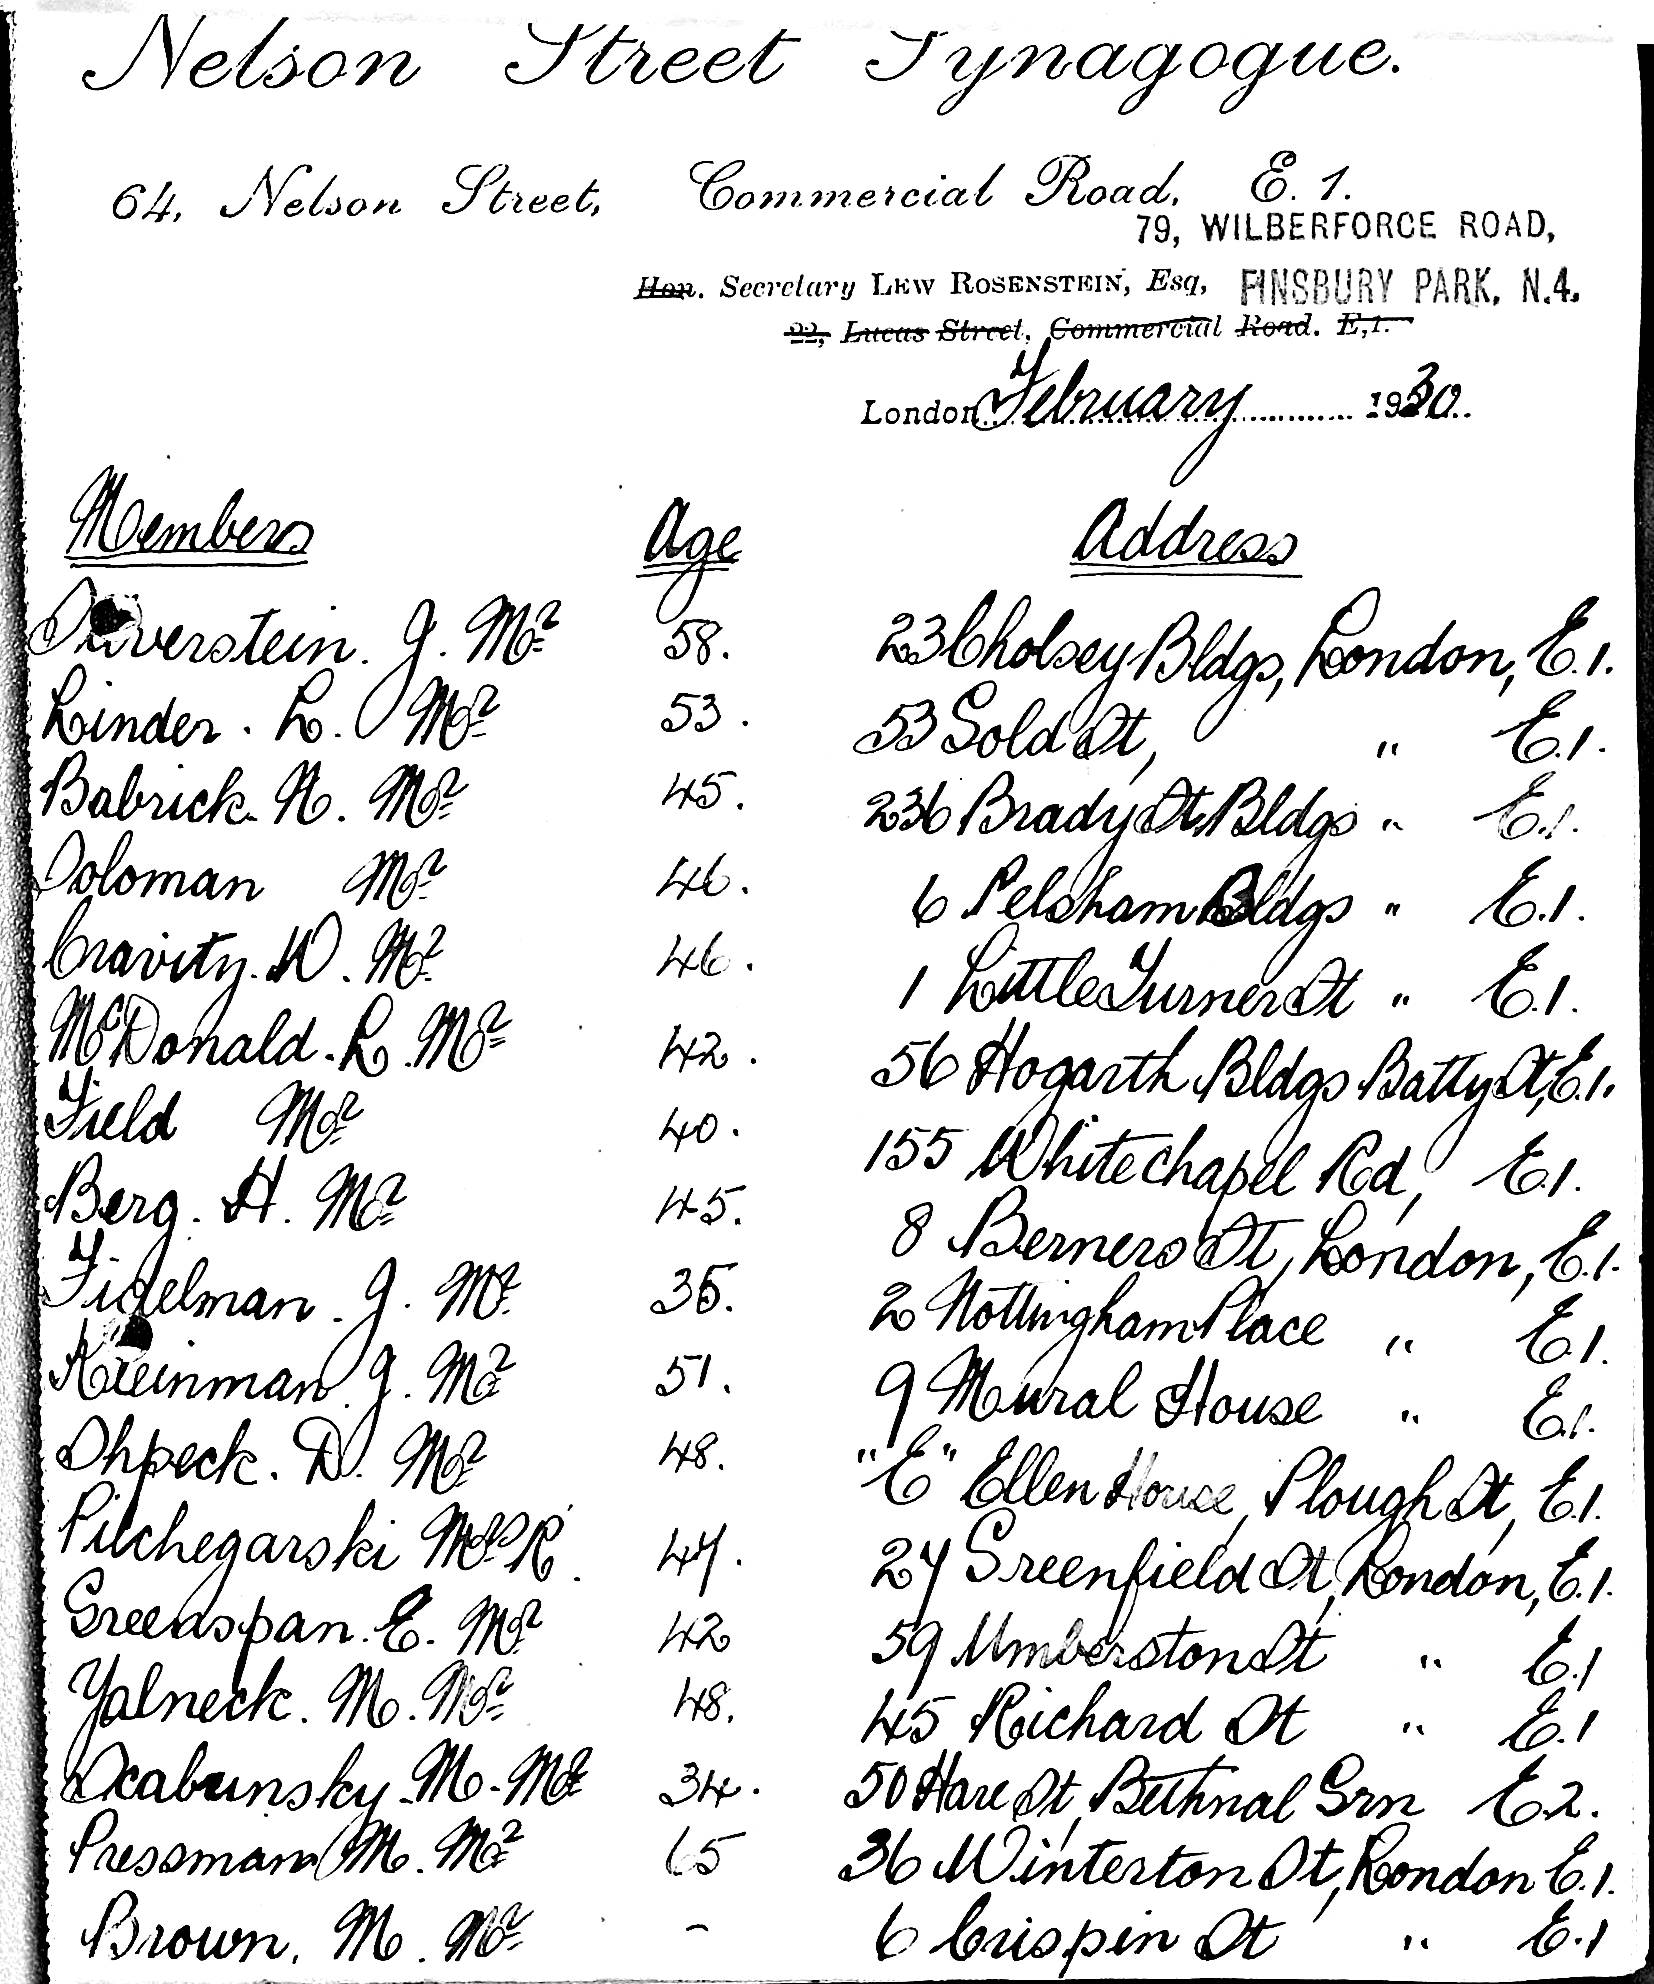 Nelson Street Synagogue.
64, Nelson Street, Commercial Road, E. 1.
79, WILBERFORCE ROAD,
Hon. Secretary LEW ROSENSTEIN, Esq, FINSBURY PARK, N.4.
22, Lucas Street, Commercial Road. E,1.
London February 1930.
Members Age Address
Silverstein. J. Mr 58. 23 Cholsey Bldgs, London, E.1.
Linder. L. Mr 53. 53 Gold St, " E.1.
Babrick. N. Mr 45. 236 Brady St. Bldgs " E.1.
Soloman Mr 46. 6 Pelham Bldgs " E.1.
Cravity. W. Mr 46. 1 Little Turner St " E.1.
McDonald. L. Mr 42. 56 Hogarth Bldgs Batty St, E.1.
Field Mr 40. 155 Whitechapel Rd, E.1.
Berg. H. Mr 45. 8 Berners St, London, E.1.
Figelman. J. Mr 35. 2 Nottingham Place " E.1.
Kleinman J. Mr 51. 9 Mural House " E.1.
Shpeck. D. Mr 48. "E" Ellen House, Plough St, E.1.
Pilchegarski Mrs R. 47. 27 Greenfield St, London, E.1.
Greenspan. E. Mr 42 59 Umberston St " E.1
Yalneck. M. Mr 48. 45 Richard St " E.1
Scabunsky. M. Mr 34. 50 Hare St, Bethnal Grn E.2.
Pressman M. Mr 65 36 Winterton St, London E.1.
Brown. M. Mr - 6 Crispin St " E.1